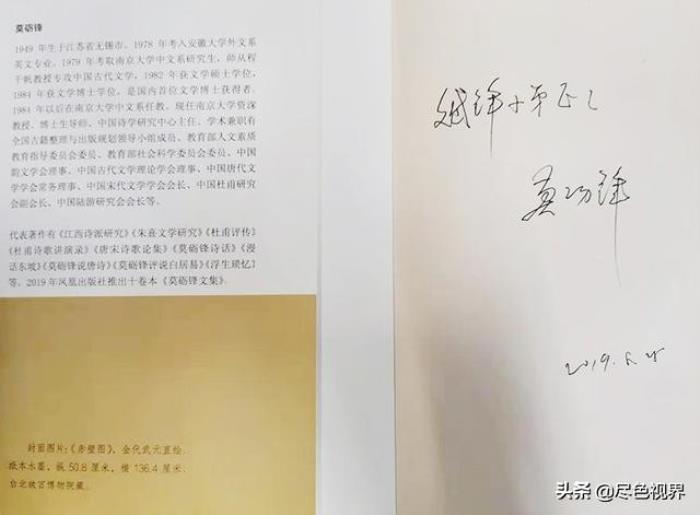 莫砺锋
1949 年生于江苏省无锡市。1978 年考入安徽大学外文系
英文专业。1979 年考取南京大学中文系研究生，师从程
千帆教授专攻中国古代文学，1982 年获文学硕士学位，
1984 年获文学博士学位，是国内首位文学博士获得者。
1984 年以后在南京大学中文系任教。现任南京大学资深
教授、博士生导师、中国诗学研究中心主任。学术兼职有
全国古籍整理与出版规划领导小组成员、教育部人文素质
教育指导委员会委员、教育部社会科学委员会委员、中国
韵文学会理事、中国古代文学理论学会理事、中国唐代文
学学会常务理事、中国宋代文学学会会长、中国杜甫研究
会副会长、中国陆游研究会会长等。
代表著作有《江西诗派研究》《朱熹文学研究》《杜甫评传》
《杜甫诗歌讲演录》《唐宋诗歌论集》《莫砺锋诗话》《漫
话东坡》《莫砺锋说唐诗》《莫砺锋评说白居易》《浮生琐忆》
等。2019 年凤凰出版社推出十卷本《莫砺锋文集》。
封面图片：《赤壁图》，金代武元直绘，
纸本水墨，纵 50.8 厘米，横 136.4 厘米，
台北故宫博物院藏。
斌锋小弟正之
莫砺锋
2019.
头条 @尽色视界